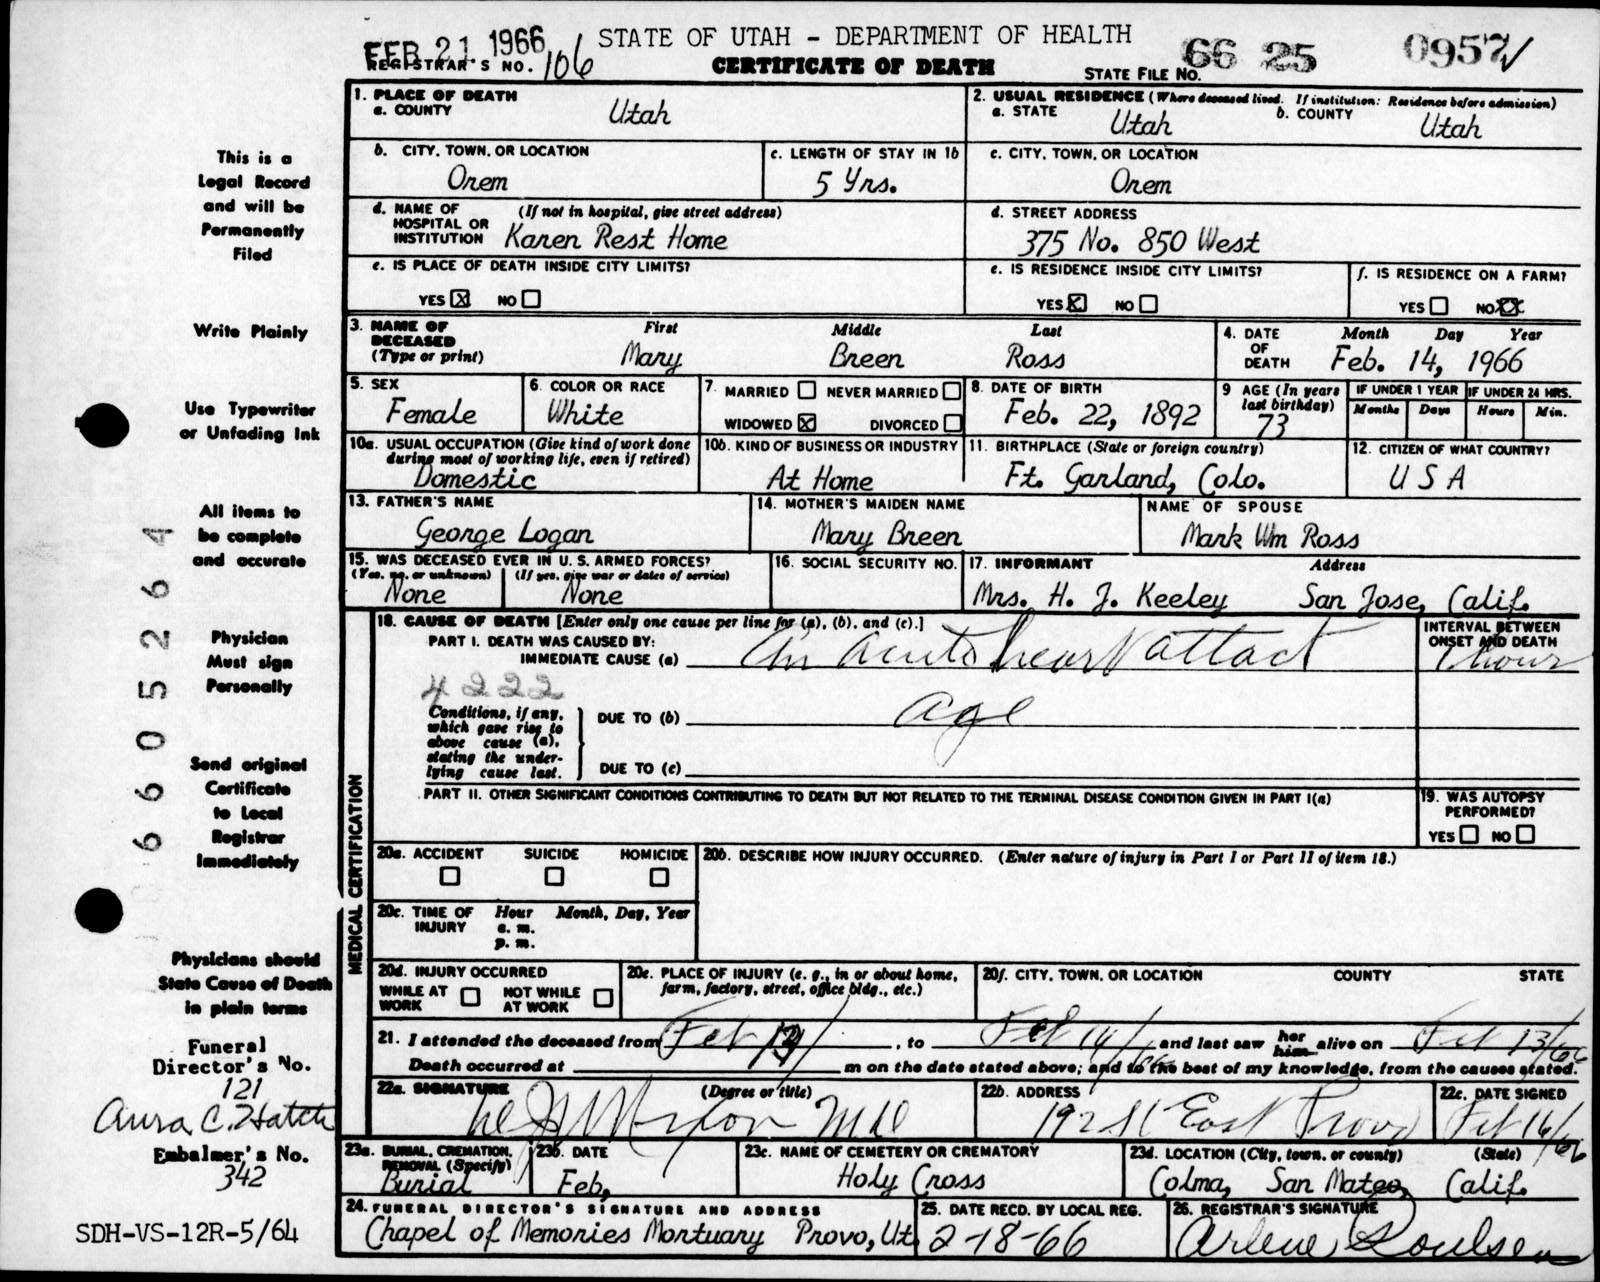 FEB 21 1966
REGISTRAR'S NO. 106
STATE OF UTAH - DEPARTMENT OF HEALTH
CERTIFICATE OF DEATH
STATE FILE NO. 66 25 0957
This is a
Legal Record
and will be
Permanently
Filed
Write Plainly
Use Typewriter
or Unfading Ink
All items to
be complete
and accurate
Physician
Must sign
Personally
Send original
Certificate
to Local
Registrar
Immediately
Physicians should
State Cause of Death
in plain terms
Funeral
Director's No.
121
Embalmer's No.
342
SDH-VS-12R-5/64
6605264
1. PLACE OF DEATH
a. COUNTY Utah
2. USUAL RESIDENCE (Where deceased lived. If institution: Residence before admission)
a. STATE Utah b. COUNTY Utah
b. CITY, TOWN, OR LOCATION Orem
c. LENGTH OF STAY IN 1b 5 Yrs.
c. CITY, TOWN, OR LOCATION Orem
d. NAME OF HOSPITAL OR INSTITUTION (If not in hospital, give street address) Karen Rest Home
d. STREET ADDRESS 375 No. 850 West
e. IS PLACE OF DEATH INSIDE CITY LIMITS?
YES X NO
e. IS RESIDENCE INSIDE CITY LIMITS?
YES X NO
f. IS RESIDENCE ON A FARM?
YES NO XX
3. NAME OF DECEASED (Type or print)
First Middle Last
Mary Breen Ross
4. DATE OF DEATH Month Day Year
Feb. 14, 1966
5. SEX Female
6. COLOR OR RACE White
7. MARRIED NEVER MARRIED
WIDOWED X DIVORCED
8. DATE OF BIRTH Feb. 22, 1892
9 AGE (In years last birthday) 73
IF UNDER 1 YEAR Months Days
IF UNDER 24 HRS. Hours Min.
10a. USUAL OCCUPATION (Give kind of work done during most of working life, even if retired)
Domestic
10b. KIND OF BUSINESS OR INDUSTRY
At Home
11. BIRTHPLACE (State or foreign country)
Ft. Garland, Colo.
12. CITIZEN OF WHAT COUNTRY?
USA
13. FATHER'S NAME
George Logan
14. MOTHER'S MAIDEN NAME
Mary Breen
NAME OF SPOUSE
Mark Wm Ross
15. WAS DECEASED EVER IN U. S. ARMED FORCES?
(Yes, no, or unknown) (If yes, give war or dates of service)
None None
16. SOCIAL SECURITY NO.
17. INFORMANT Address
Mrs. H. J. Keeley San Jose, Calif.
MEDICAL CERTIFICATION
18. CAUSE OF DEATH [Enter only one cause per line for (a), (b), and (c).]
INTERVAL BETWEEN ONSET AND DEATH
PART I. DEATH WAS CAUSED BY:
IMMEDIATE CAUSE (a) An acute heart attact
1 hour
4222
Conditions, if any, which gave rise to above cause (a), stating the under-lying cause last.
DUE TO (b) age
DUE TO (c)
PART II. OTHER SIGNIFICANT CONDITIONS CONTRIBUTING TO DEATH BUT NOT RELATED TO THE TERMINAL DISEASE CONDITION GIVEN IN PART I(a)
19. WAS AUTOPSY PERFORMED?
YES NO
20a. ACCIDENT SUICIDE HOMICIDE
20b. DESCRIBE HOW INJURY OCCURRED. (Enter nature of injury in Part I or Part II of item 18.)
20c. TIME OF INJURY Hour Month, Day, Year
a. m.
p. m.
20d. INJURY OCCURRED
WHILE AT WORK NOT WHILE AT WORK
20e. PLACE OF INJURY (e. g., in or about home, farm, factory, street, office bldg., etc.)
20f. CITY, TOWN, OR LOCATION COUNTY STATE
21. I attended the deceased from Feb 13/, to Feb 14/66 and last saw her him alive on Feb 13/66
Death occurred at m on the date stated above; and to the best of my knowledge, from the causes stated.
22a. SIGNATURE (Degree or title)
22b. ADDRESS
East Provo
22c. DATE SIGNED
Feb 16/66
23a. BURIAL, CREMATION, REMOVAL (Specify)
Burial
23b. DATE
Feb,
23c. NAME OF CEMETERY OR CREMATORY
Holy Cross
23d. LOCATION (City, town, or county) (State)
Colma, San Mateo, Calif.
24. FUNERAL DIRECTOR'S SIGNATURE AND ADDRESS
Chapel of Memories Mortuary Provo, Ut.
25. DATE RECD. BY LOCAL REG.
2-18-66
26. REGISTRAR'S SIGNATURE
Arlene